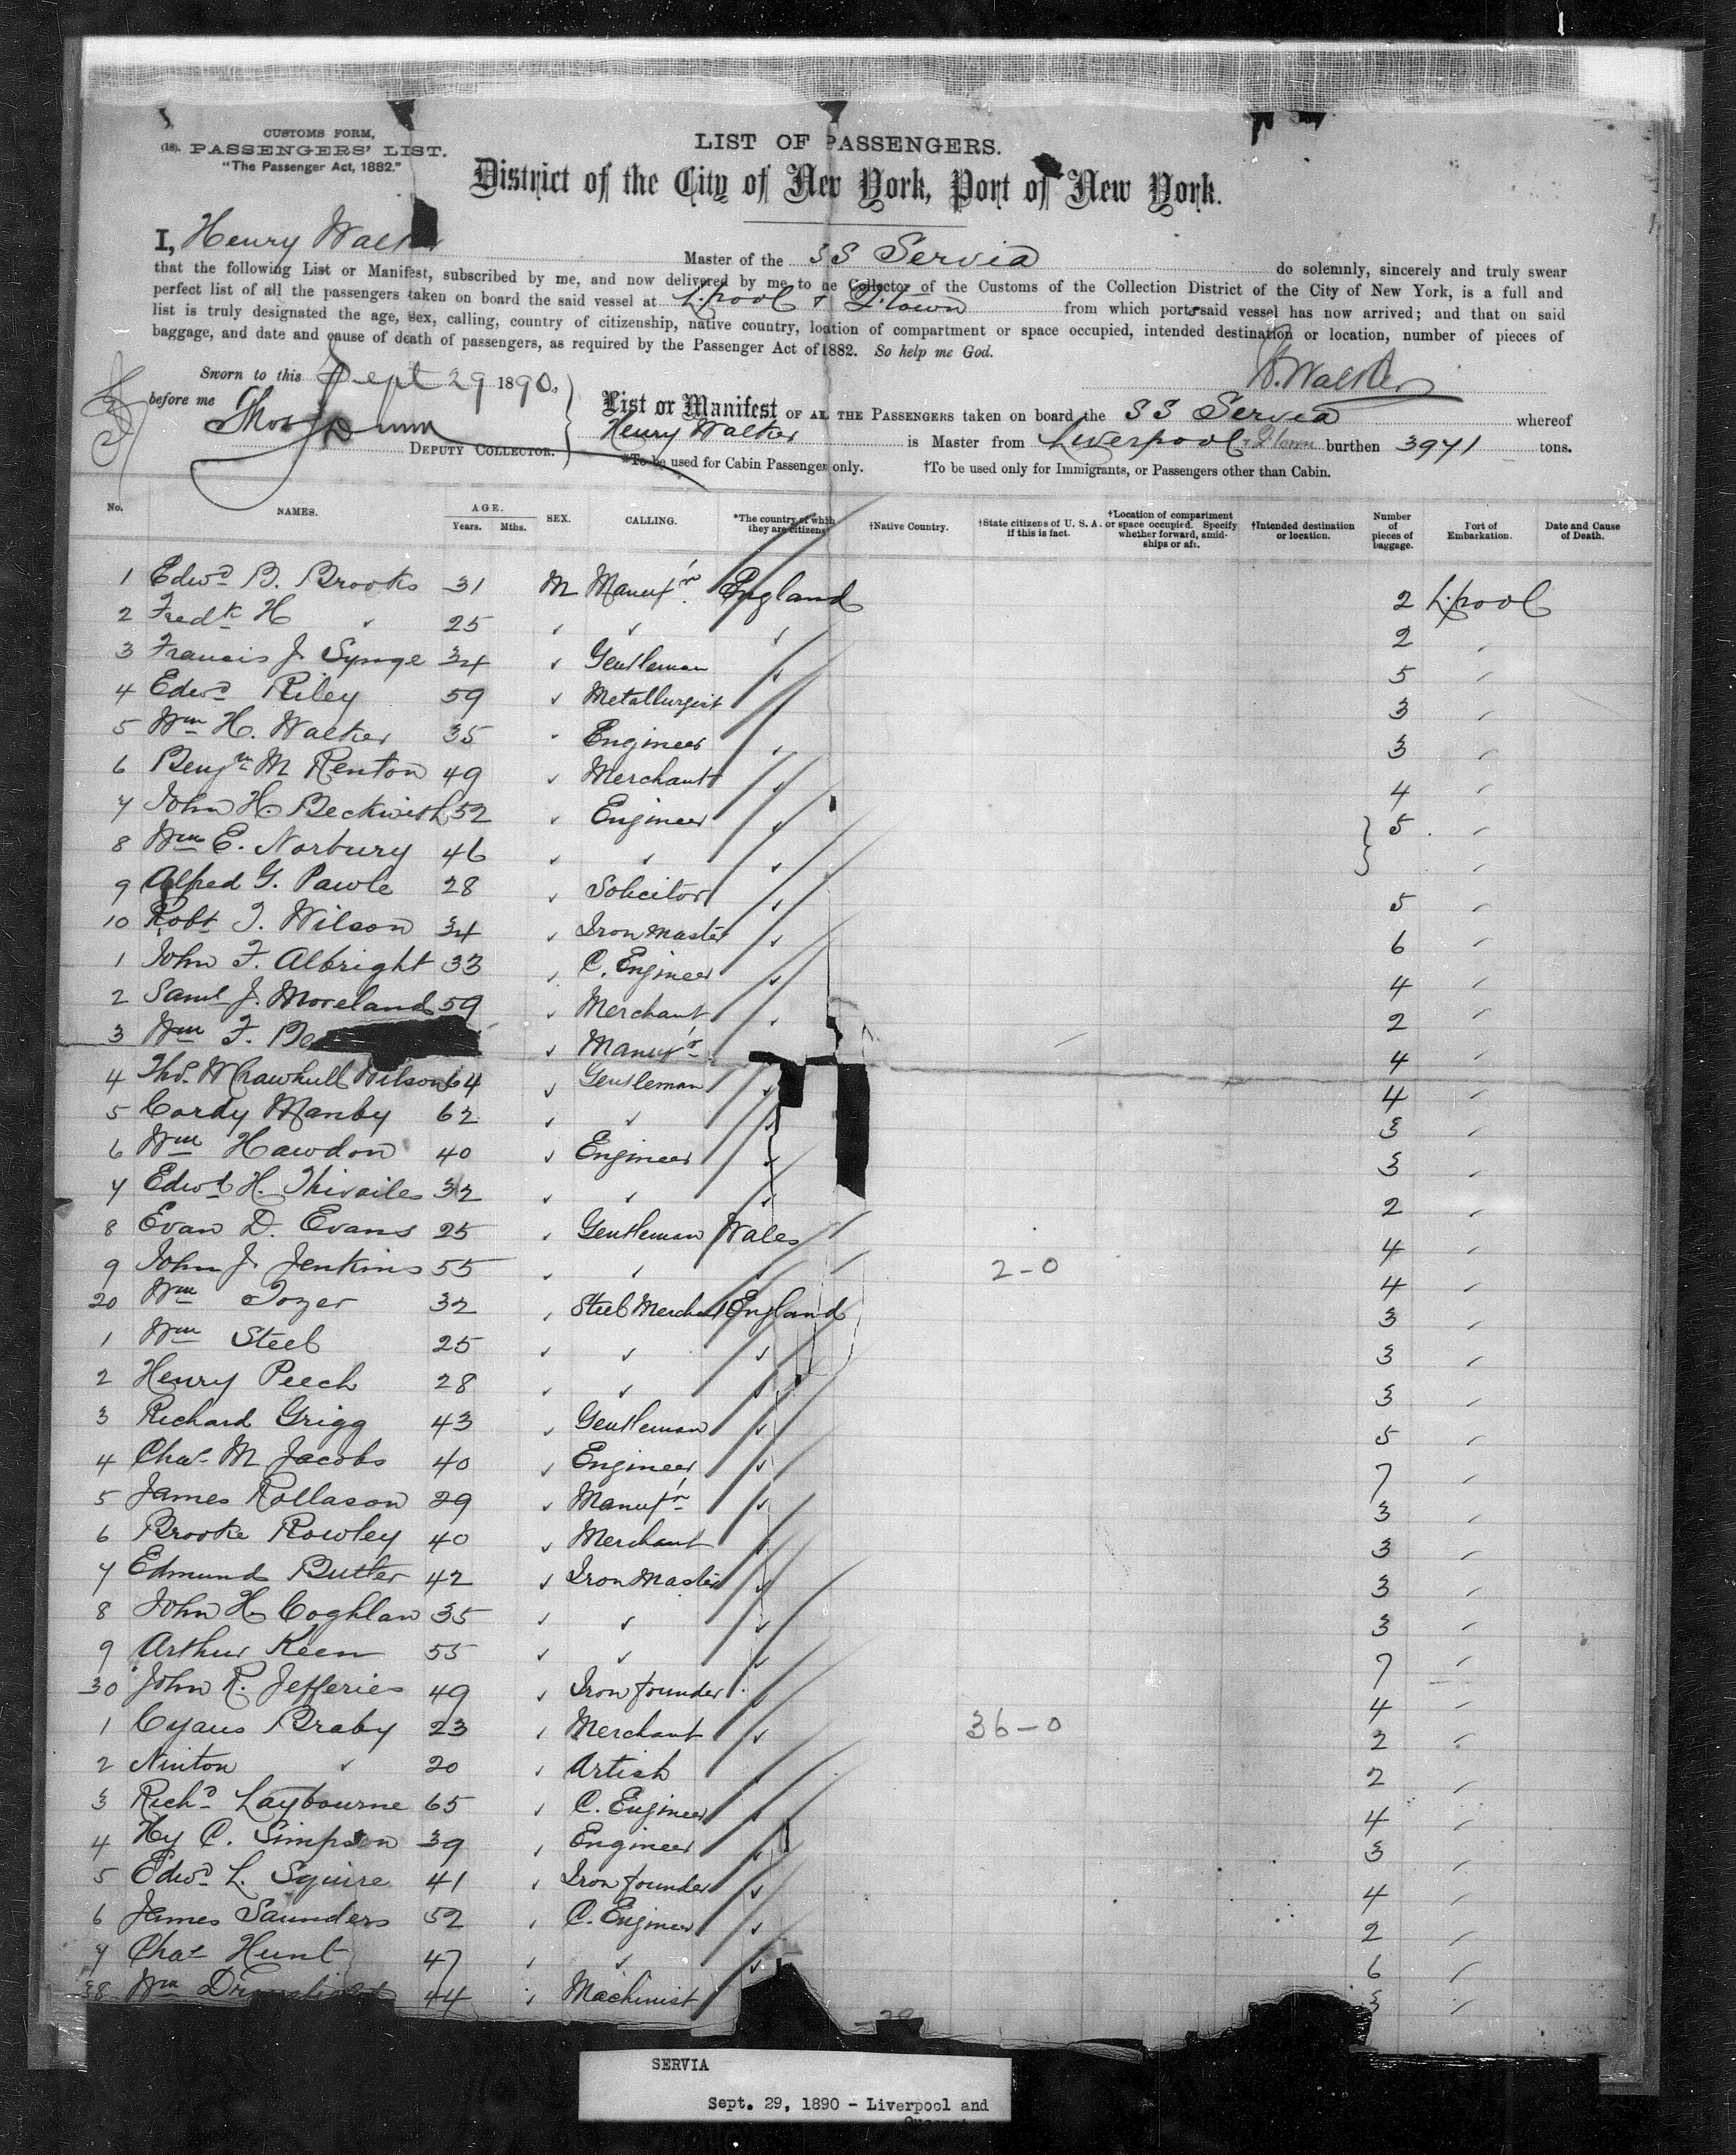 CUSTOMS FORM,
(18). PASSENGERS' LIST.
"The Passenger Act, 1882."
LIST OF PASSENGERS.
District of the City of New York, Port of New York.
I, Henry Walker Master of the SS Servia do solemnly, sincerely and truly swear
that the following List or Manifest, subscribed by me, and now delivered by me to the Collector of the Customs of the Collection District of the City of New York, is a full and
perfect list of all the passengers taken on board the said vessel at L.pool & Q.town from which ports said vessel has now arrived; and that on said
list is truly designated the age, sex, calling, country of citizenship, native country, location of compartment or space occupied, intended destination or location, number of pieces of
baggage, and date and cause of death of passengers, as required by the Passenger Act of 1882. So help me God.
Sworn to this Sept 29 1890,
H. Walker
before me
Thos
DEPUTY COLLECTOR.
List or Manifest OF ALL THE PASSENGERS taken on board the SS Servia whereof
Henry Walker is Master from Liverpool & Q.town burthen 3971 tons.
*To be used for Cabin Passenger only. †To be used only for Immigrants, or Passengers other than Cabin.
No. NAMES. AGE. Years. Mths. SEX. CALLING. *The country of which they are citizens †Native Country. †State citizens of U. S. A. if this is fact. †Location of compartment or space occupied. Specify whether forward, amidships or aft. †Intended destination or location. Number of pieces of baggage. Port of Embarkation. Date and Cause of Death.
1 Edwd B. Brooks 31 M Manufr England 2 L.pool
2 Fredk H " 25 " " " 2 "
3 Francis J. Synge 34 " Gentleman " 5 "
4 Edwd Riley 59 " Metallurgist 3 "
5 Wm H. Walker 35 " Engineer " 3 "
6 Benjn M Renton 49 " Merchant " 4 "
7 John H. Beckwith 52 " Engineer " 5 "
8 Wm E. Norbury 46 " " " "
9 Alfred G. Pawle 28 " Solicitor " 5 "
10 Robt T. Wilson 34 " Iron master " 6 "
1 John F. Albright 33 " C. Engineer " 4 "
2 Saml J. Moreland 59 " Merchant " 2 "
3 Wm F. Be " Manufr 4 "
4 Thos Wilson 64 " Gentleman " 4 "
5 Cordy Manby 62 " " " 3 "
6 Wm Hawdon 40 " Engineer " 3 "
7 Edwd H. 32 " " " 2 "
8 Evan D. Evans 25 " Gentleman Wales 4 "
9 John J. Jenkins 55 " " " 2-0 4 "
20 Wm Tozer 32 " Steel Merchant England 3 "
1 Wm Steel 25 " " " 3 "
2 Henry Peech 28 " " " 3 "
3 Richard Grigg 43 " Gentleman " 5 "
4 Chas M Jacobs 40 " Engineer " 7 "
5 James Rollason 29 " Manufr " 3 "
6 Brooke Rowley 40 " Merchant 3 "
7 Edmund Butler 42 " Iron Master " 3 "
8 John H. Coghlan 35 " " " 3 "
9 Arthur Keen 55 " " " 7 "
30 John R. Jefferies 49 " Iron founder " 4 "
1 Cyrus Braby 23 " Merchant " 36-0 2 "
2 " 20 " Artist " 2 "
3 Richd Laybourne 65 " C. Engineer " 4 "
4 Hy C. Simpson 39 " Engineer " 3 "
5 Edwd L. Squire 41 " Iron founder " 4 "
6 James Saunders 52 " C. Engineer " 2 "
7 Chas Hunt 47 " " " 6 "
38 Wm 44 " Machinist 3 "
SERVIA
Sept. 29, 1890 - Liverpool and